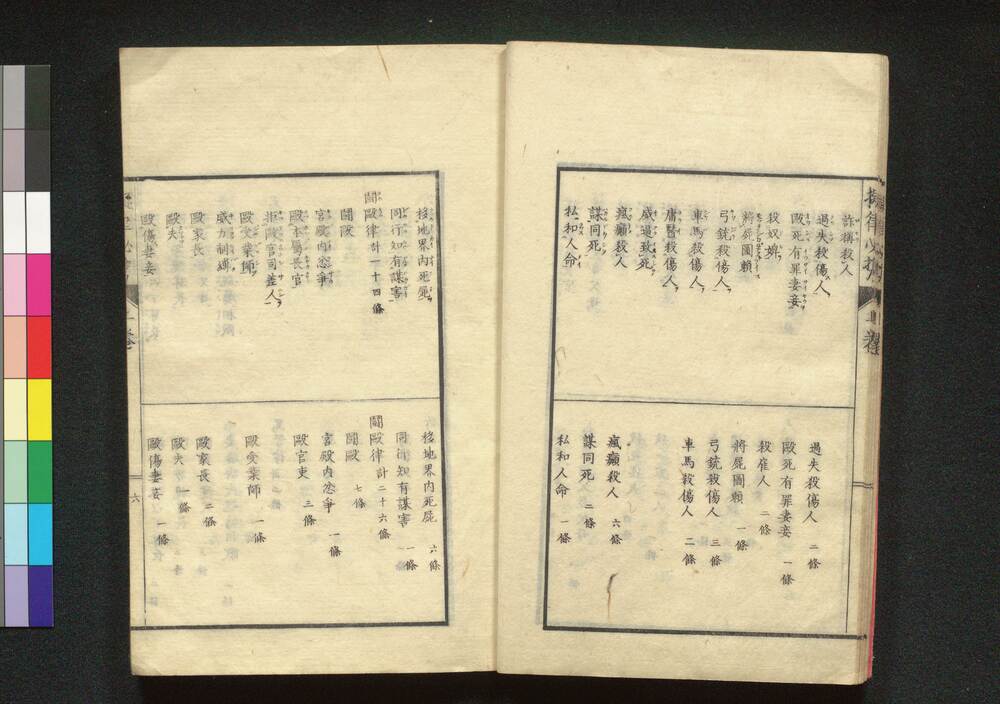 詐稱殺人
過失殺傷人
毆死有罪妻妾
殺奴婢
將屍圖賴
弓銃殺傷人
車馬殺傷人
庸醫殺傷人
威逼致死
瘋癲殺人
謀同死
私和人命
過失殺傷人 二條
毆死有罪妻妾 一條
殺雇人 二條
將屍圖賴 一條
弓銃殺傷人 三條
車馬殺傷人 二條
瘋癲殺人 六條
謀同死 二條
私和人命 一條
移地界內死屍
同行知有謀害
鬪毆律計一十四條
鬪毆
宮殿內忿爭
毆本屬長官
拒毆官司差人
毆受業師
威力制縛
毆家長
毆夫
毆傷妻妾
移地界內死屍 六條
同行知有謀害 一條
鬪毆律計二十六條
鬪毆 七條
宮殿內忿爭 一條
毆官吏 三條
毆受業師 一條
毆家長 二條
毆夫 一條
毆傷妻妾 一條
六